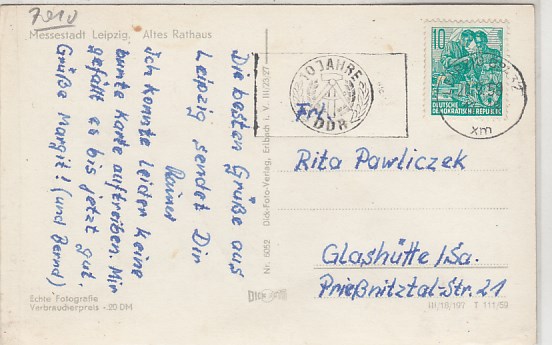 7010
Messestadt Leipzig. Altes Rathaus
Die besten Grüße aus
Leipzig sendet Dir
Rainer
Ich konnte leider keine
bunte Karte auftreiben. Mir
gefällt es bis jetzt gut.
Grüße Margit! (und Bernd)
Echte Fotografie
Verbraucherpreis -.20 DM
Nr. 6052 Dick-Foto-Verlag, Erlbach i. V. III/23/27
DICK
10 JAHRE
DDR
Frl.
10
DEUTSCHE
DEMOKRATISCHE REPUBLIK
xm
Rita Pawliczek
Glashütte/Sa.
Prießnitztal-Str. 21
III/18/197 T 111/59